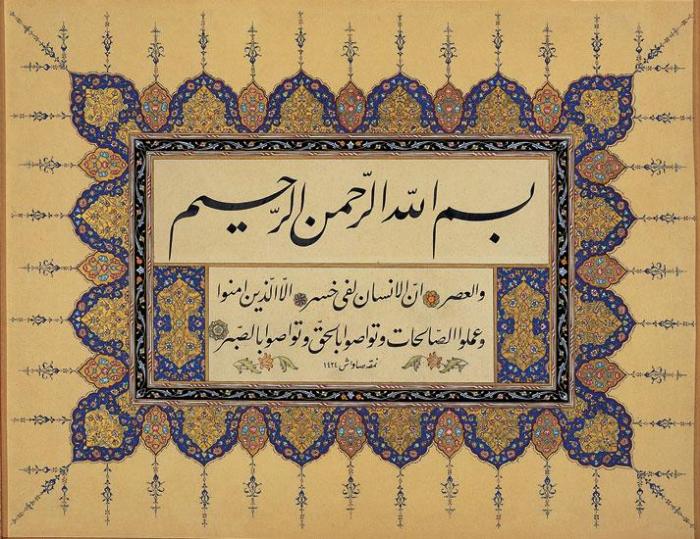 بسم الله الرّحمن الرّحیم
والعصر انّ الانسان لفی خسر الّا الّذین امنوا
وعملوا الصّالحات وتواصوا بالحقّ وتواصوا بالصّبر
نمقه صاواش